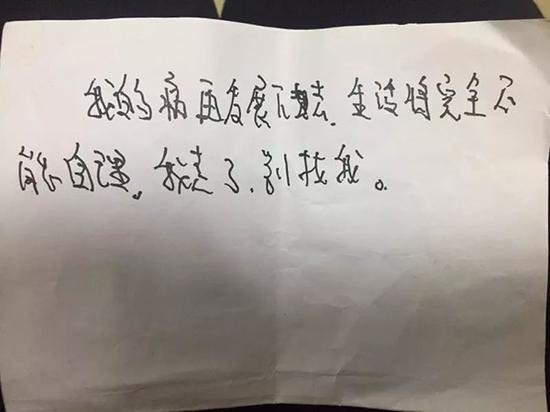 我的病再发展下去,生活将完全不
能自理。我走了,别找我。